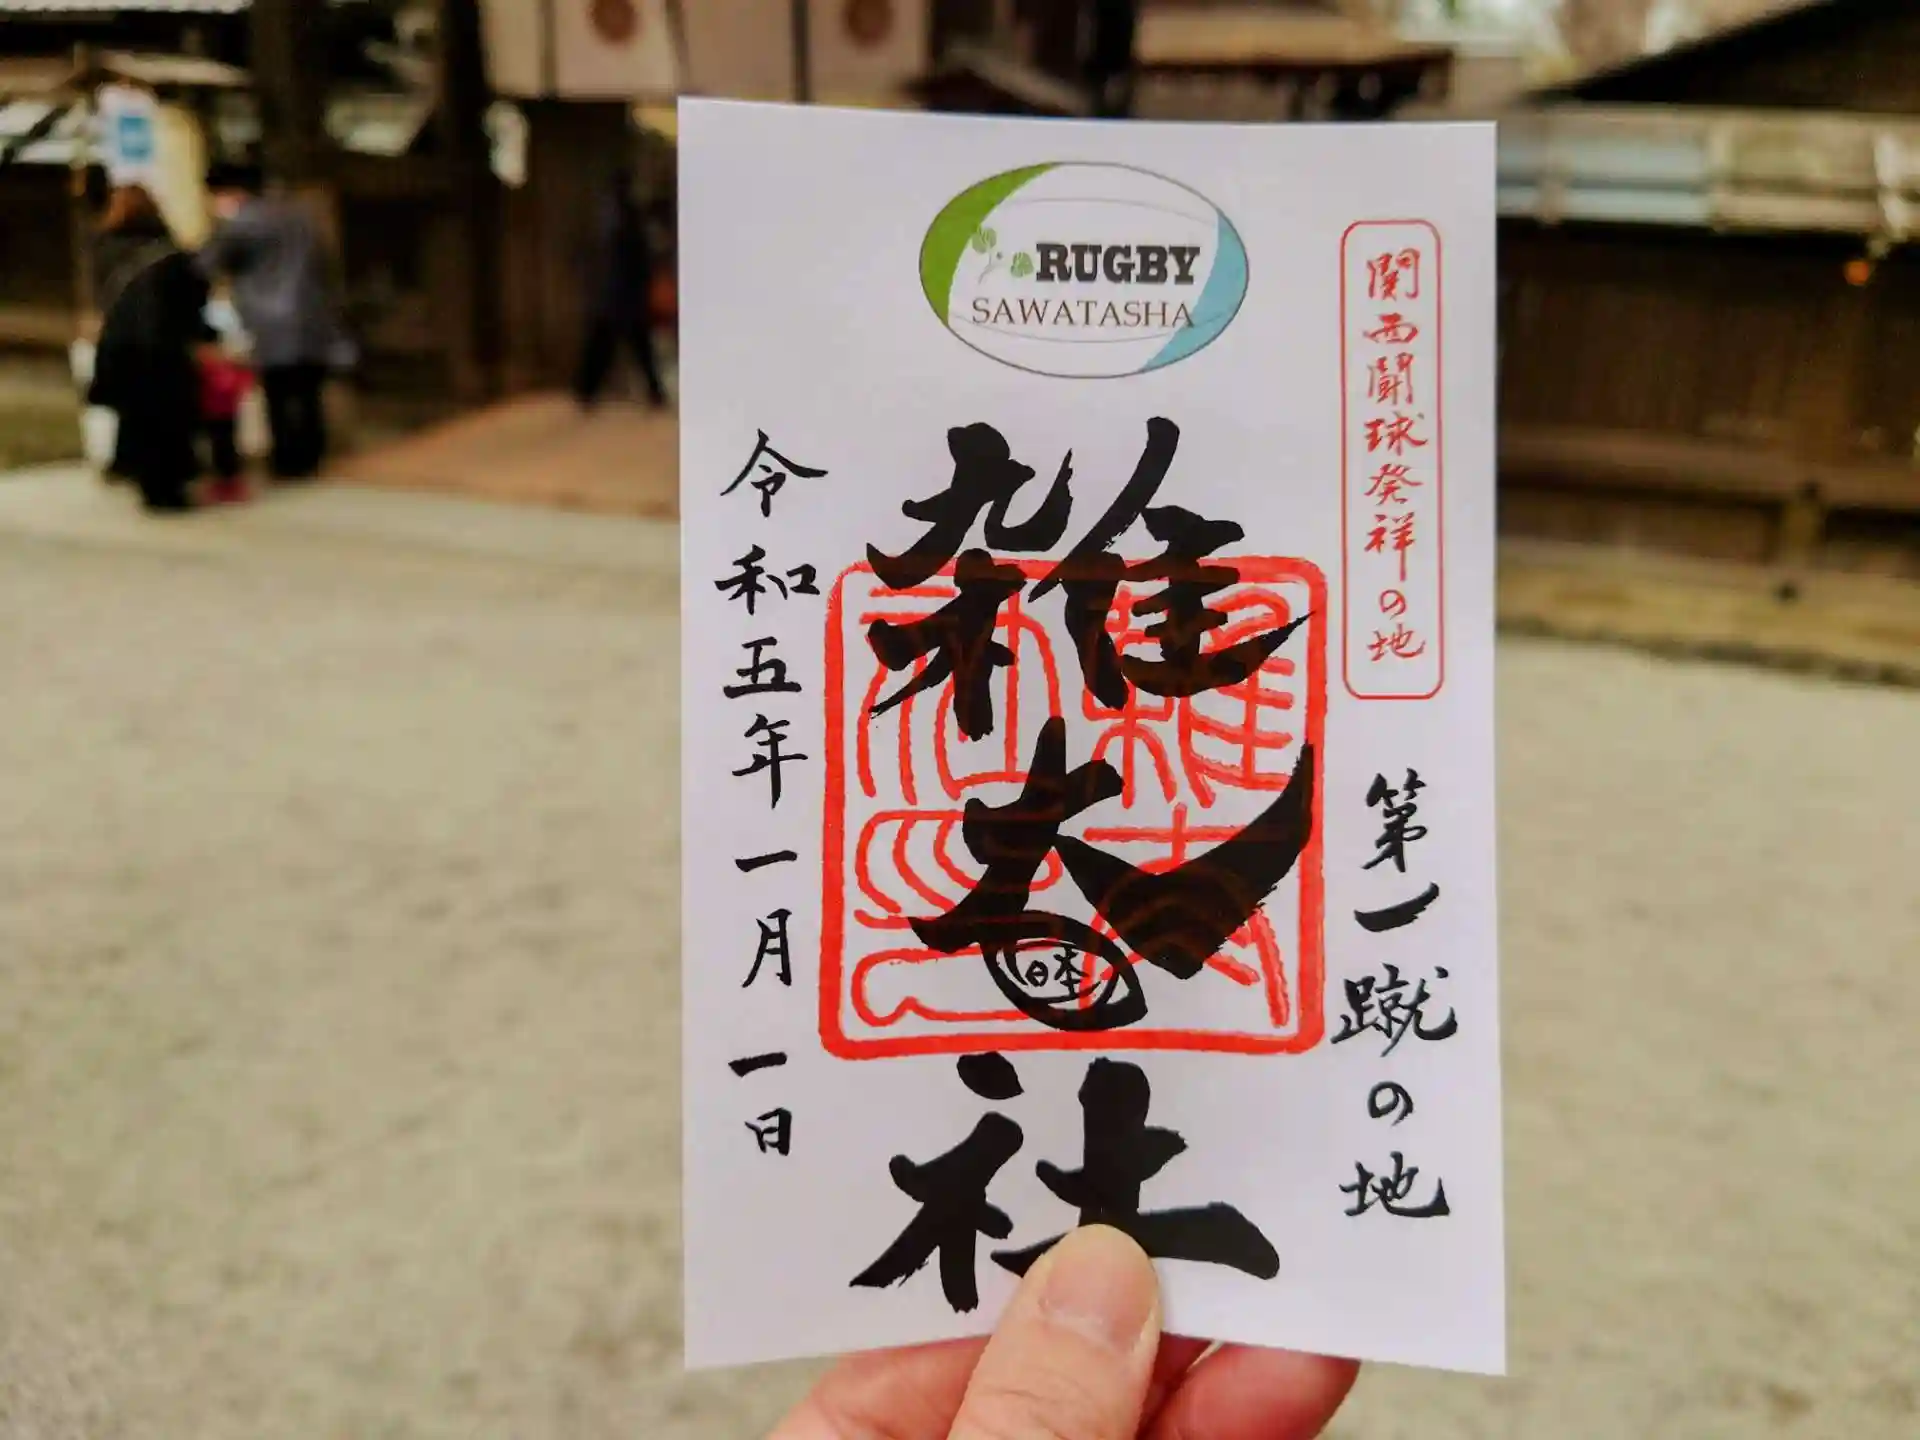 RUGBY
SAWATASHA
関西闘球発祥の地
第一蹴の地
雑太社
日本
令和五年一月一日